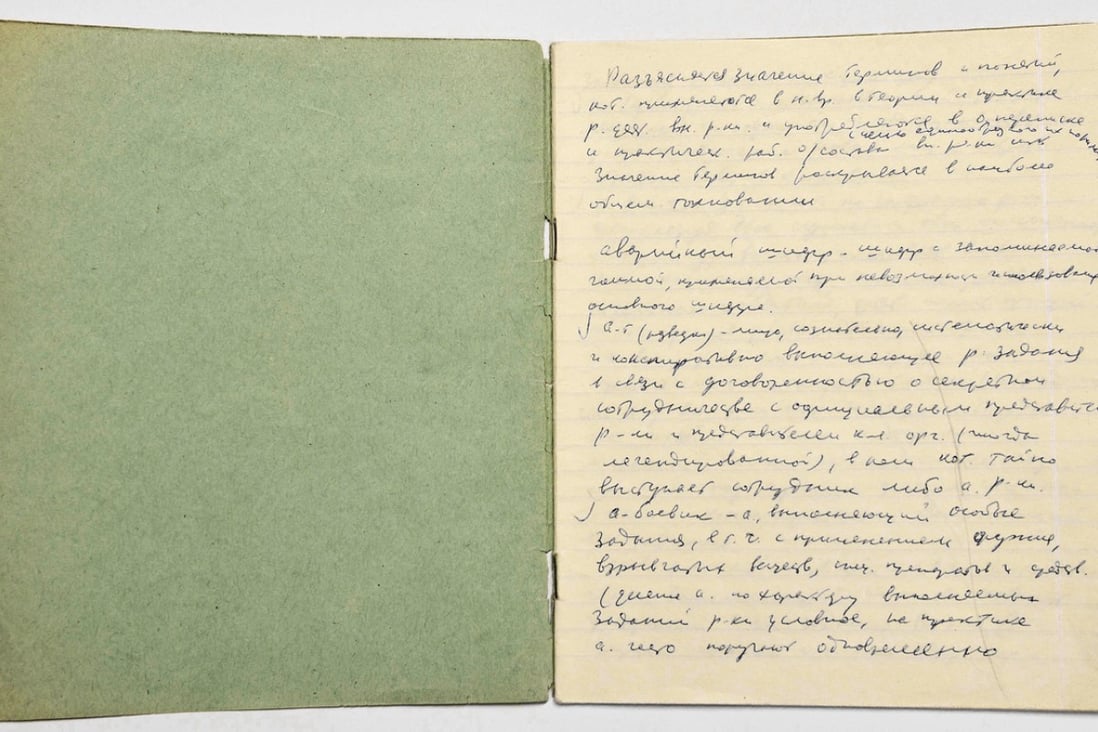 Разъясняется значение терминов и понятий,
кот. применяются в н.вр. в теории и практике
р. деят. вн. р-ки. и употребляются в оп. переписке
с целью единообразного их
и практическ. раб. о/состава вн. р-ки
Значение терминов раскрывается в наиболее
общем толковании
аварийный шифр - шифр с запоминаемой
гаммой, применяемой при невозможности использования
основного шифра.
а-т (разведки) - лицо, сознательно, систематически
и конспиративно выполняющее р. задания
в связи с договоренностью о секретном
сотрудничестве с официальным представител
р-ки и представителем к-л. орг. (иногда
легендированной), в кот. тайно
выступает сотрудник либо а. р-ки.
а-боевик - а, выполняющий особые
задания, в т.ч. с применением оружия,
взрывчатых веществ, спец. препаратов и средств.
(деление а. по характеру выполняемых
заданий р-ки условное, на практике
а. часто поручают одновременно